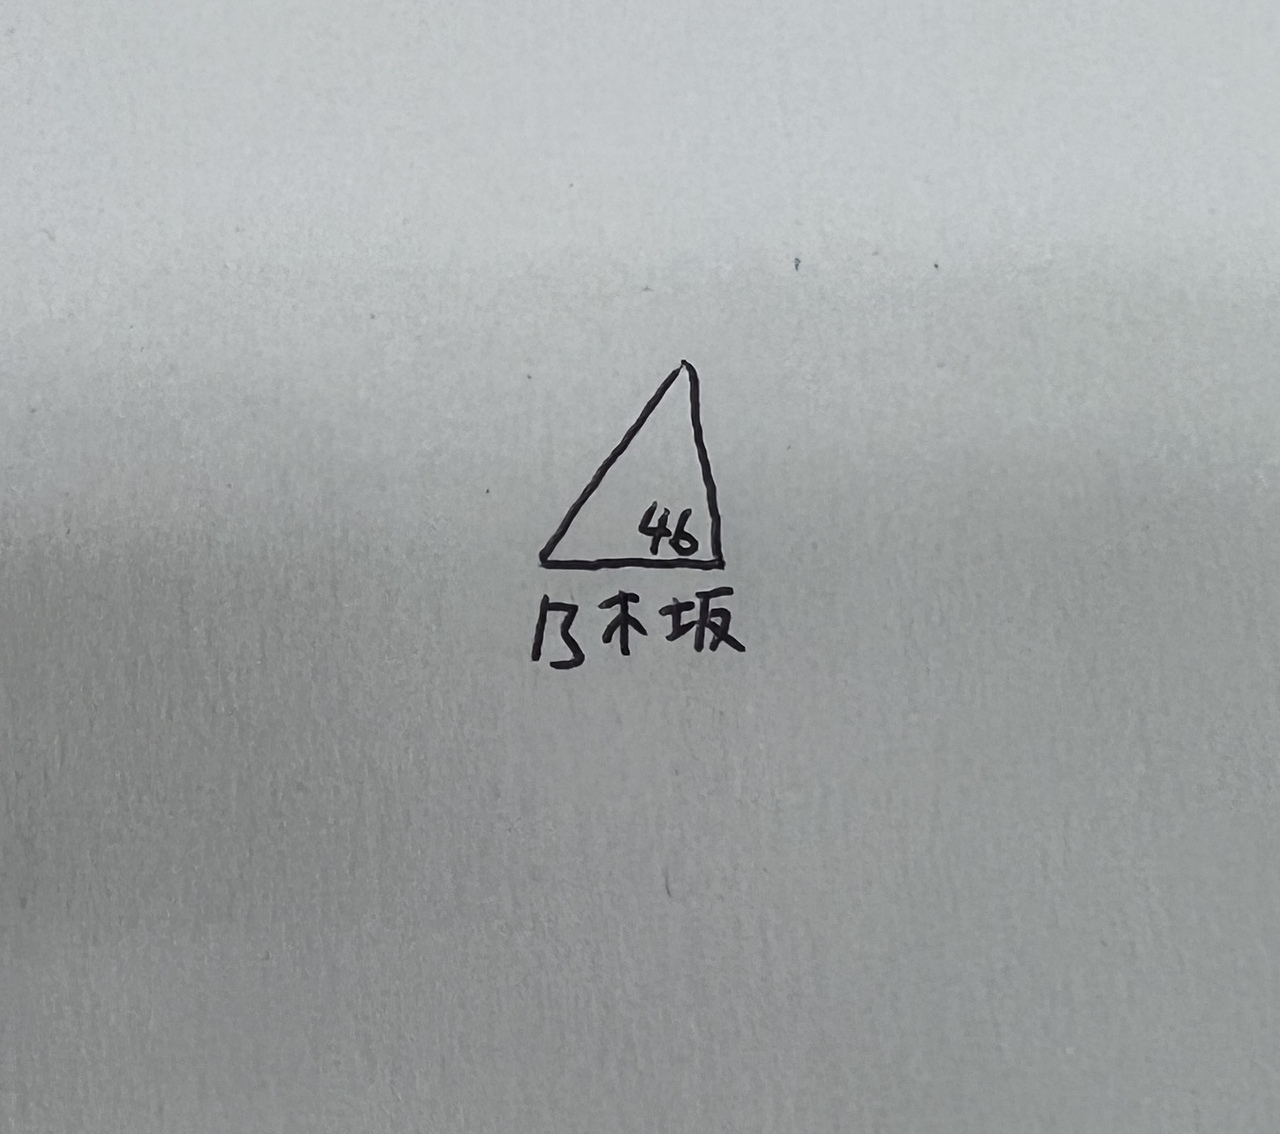 46
乃木坂